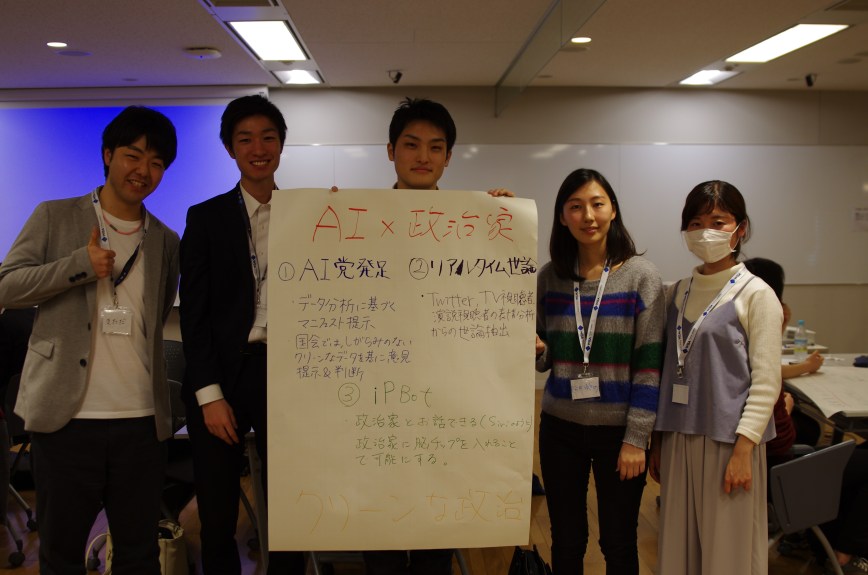 AI × 政治家
① AI党発足
・データ分析に基づく
マニフェスト提示
国会ではしがらみのない
クリーンなデータを基に意見
提示&判断
② リアルタイム世論
・Twitter, TV視聴者,
演説視聴者の表情分析
からの世論抽出
③ iPBot
・政治家とお話できる(Siri的)
政治家に脳チップを入れること
で可能にする。
クリーンな政治